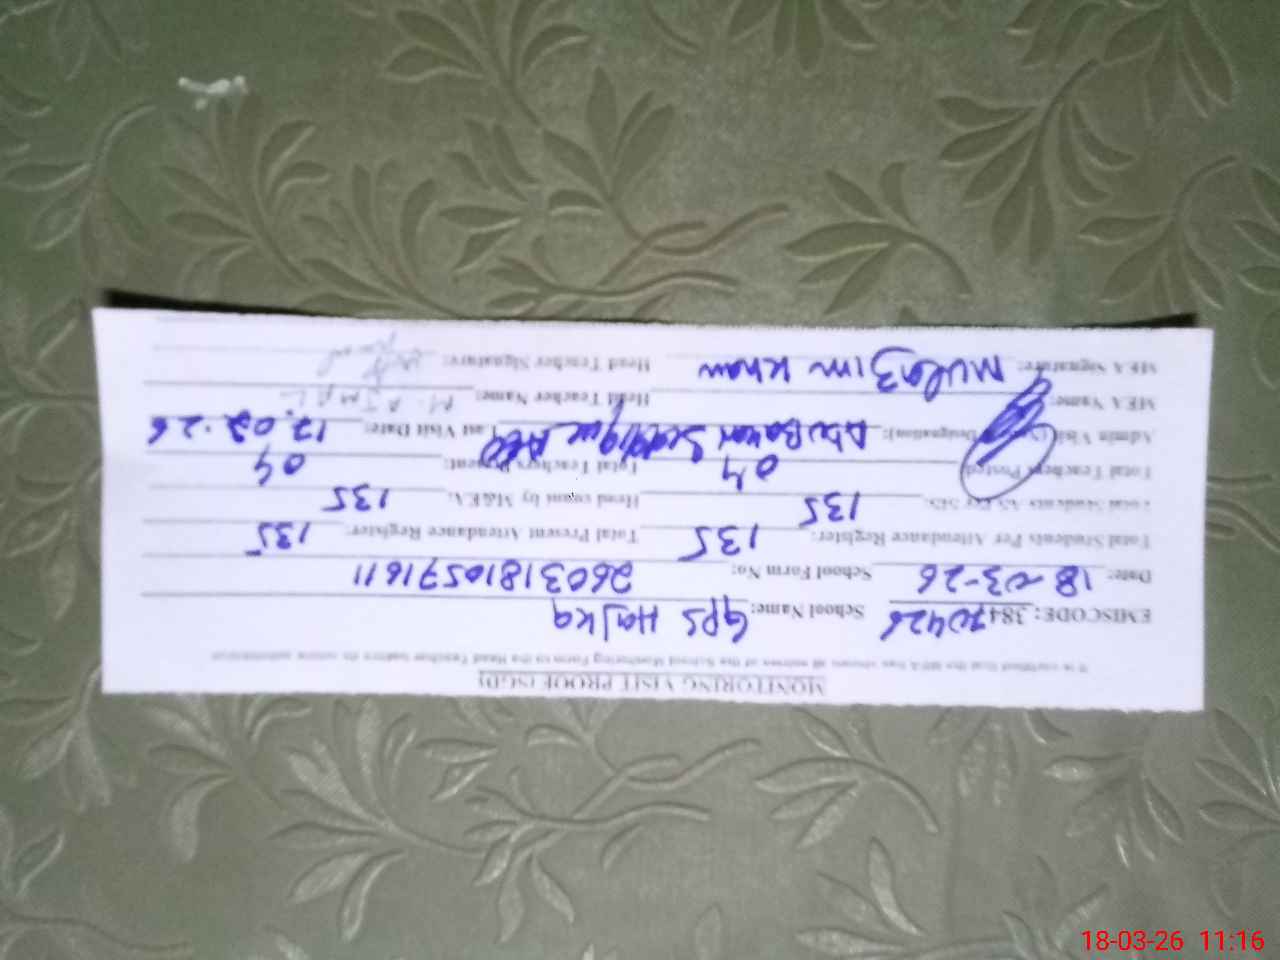 MONITORING VISIT PROOF (SGD)
It is certified that the MEA has shown all entries of the School Monitoring Form to the Head Teacher before its online submission
EMISCODE: 38470426 School Name: GPS Hajka
Date: 18-03-26 School Form No: 26031810571611
Total Students Per Attendance Register: 135 Total Present Attendance Register: 135
Total Students As Per SIS: 135 Head count by M&EA: 135
Total Teachers Posted: 04 Total Teachers Present: 04
Admin Visit (Name, Designation): Abu Bakar Siddique AEO Last Visit Date: 17.02.26
MEA Name: Head Teacher Name: M. AJMAL
MEA Signature: Mulazim Khan Head Teacher Signature:
18-03-26 11:16